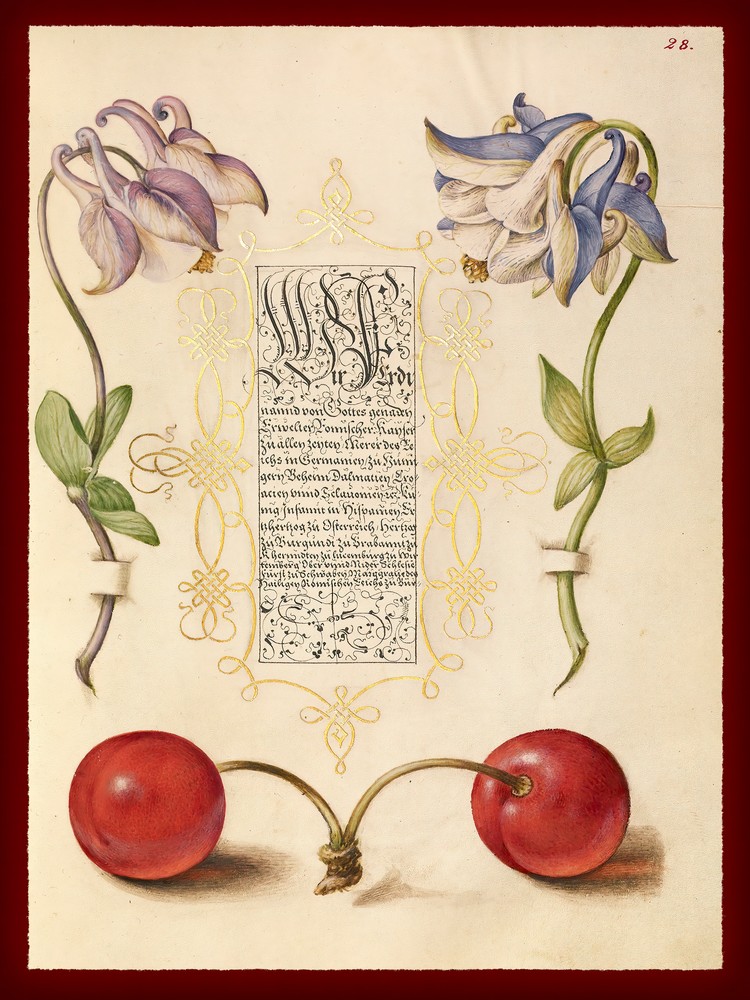 28.
Wir Ferdi
nannd von Gottes genaden
Erwelter Romischer Kayser
Zu allen zeyten Merer des Re
ichs in Germanien, zu Hung
gern Behem Dalmatien Cro
acien vnnd Sclauonien rc. Ku
nig Infannt in Hispanien, Er
tzhertzog zu Osterreich Hertzog
zu Burgundi zu Brabannt zu
zu Lucemburg zu Wir
temberg Ober vnnd Nider Schlesie
Fürst zu Schwaben Marggraue des
Hailigen Römischen Reichs zu Bur